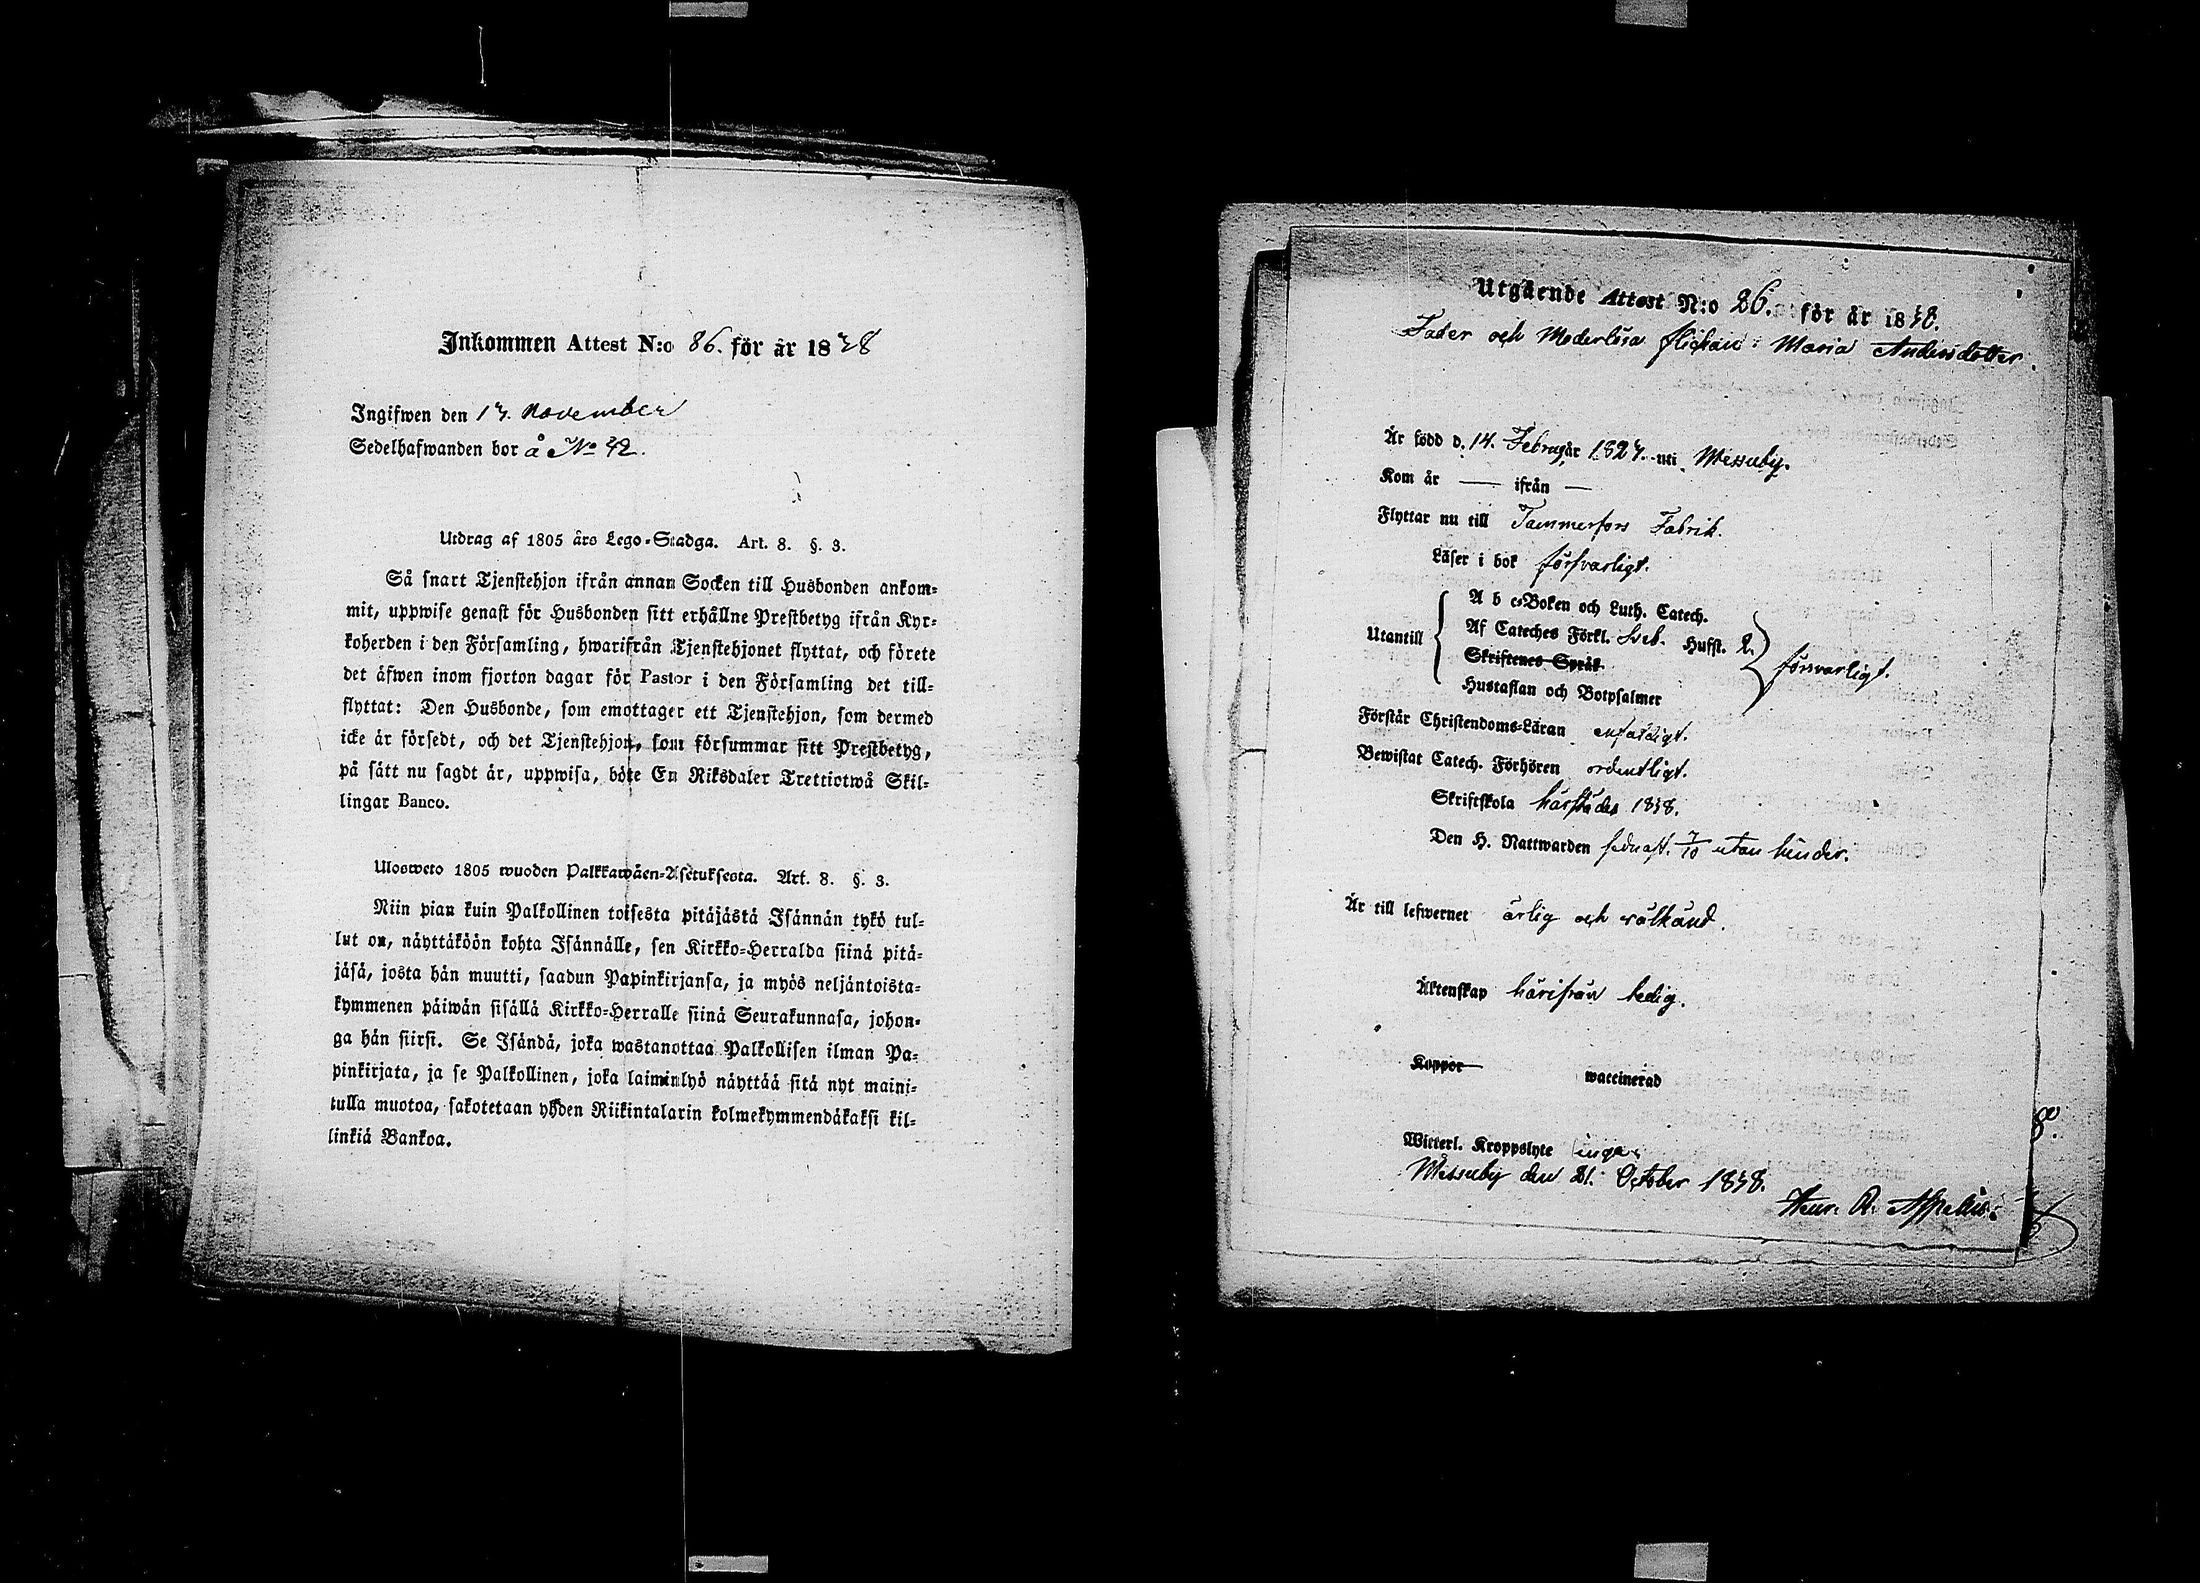 Inkommen Attest N:o 86. för år 1838
Ingifwen den 13. November
Sedelhafwanden bor å No 42.
Utdrag af 1805 års Lego-Stadga. Art. 8. §. 3.
Så snart Tjenstehjon ifrån annan Socken till Husbonden ankom-
mit, uppwise genast för Husbonden sitt erhållne Prestbetyg ifrån Kyr-
koherden i den Församling, hwarifrån Tjenstehjonet flyttat, och förete
det äfwen inom fjorton dagar för Pastor i den Församling det till-
flyttat: Den Husbonde, som emottager ett Tjenstehjon, som dermed
icke är försedt, och det Tjenstehjon, som försummar sitt Prestbetyg,
på sätt nu sagdt är, uppwisa, böte En Riksdaler Trettiotwå Skil-
lingar Banco.
Ulosweto 1805 wuoden Palkkawäen-Asetuksesta. Art. 8. §. 3.
Niin pian kuin Palkollinen toisesta pitäjästä Isännän tykö tul-
lut on, näyttäköön kohta Isännälle, sen Kirkko-Herralda siinä pitä-
jäsä, josta hän muutti, saadun Papinkirjansa, ja myös neljäntoista-
kymmenen päiwän sisällä Kirkko-Herralle siinä Seurakunnasa, johon-
ga hän siirsi. Se Isändä, joka wastanottaa Palkollisen ilman Pa-
pinkirjata, ja se Palkollinen, joka laiminlyö näyttää sitä nyt maini-
tulla muotoa, sakotetaan yhden Riikintalarin kolmekymmendäkaksi kil-
linkiä Bankoa.
Utgående Attest N:o 26. för år 1838.
Fader och Moderlösa flickan: Maria Andersdotter.
Är född d. 14. Febru. år 1823. uti Messuby.
Kom år — ifrån —
Flyttar nu till Tammerfors Fabrik.
Läser i bok försvarligt.
A b c-Boken och Luth. Catech.
Utantill Af Cateches Förkl. Sveb. Hufst. 2. försvarligt.
Skriftenes Språk
Hustaflan och Botpsalmer
Förstår Christendoms-Läran enfaldigt.
Bewistat Catech. Förhören ordentligt.
Skriftskola härstädes 1838.
Den H. Nattwarden sednast. 7/10 utan hinder.
Är till lefwernet ärlig och välkänd.
Äktenskap härifrån ledig.
Koppor waccinerad
Witterl. Kroppslyte inga
Messuby den 21. October 1838.
Henr. R. Appelius